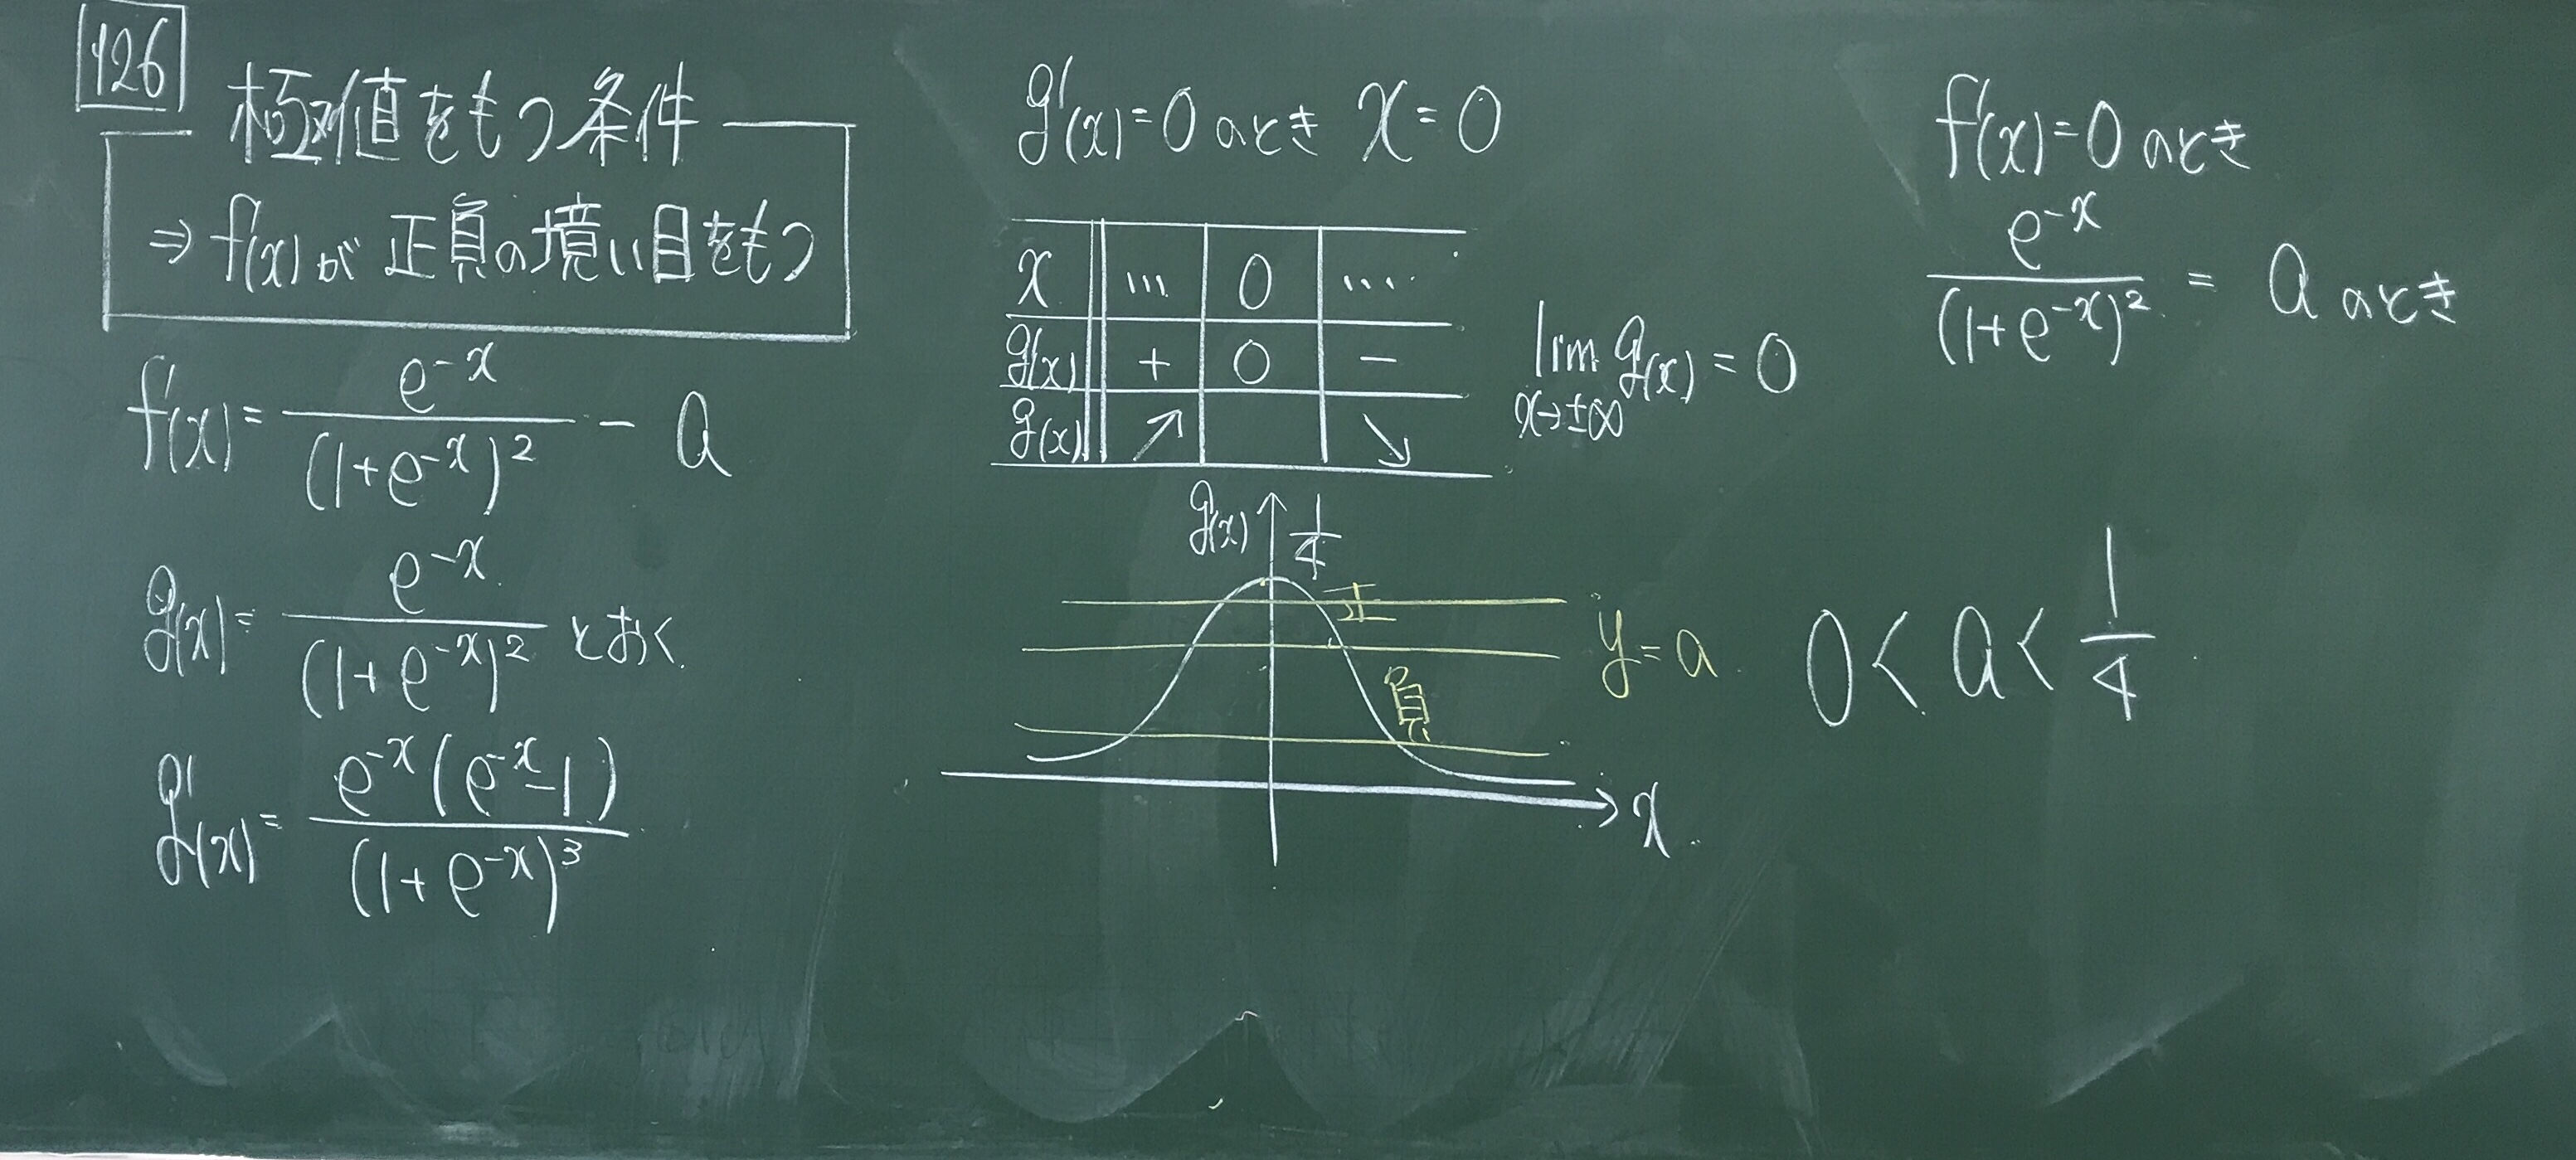 126
極値をもつ条件
⇒ f'(x) が 正負の境い目をもつ
f'(x) = e^{-x} / (1+e^{-x})^2 - a
g(x) = e^{-x} / (1+e^{-x})^2 とおく.
g'(x) = e^{-x}(e^{-x}-1) / (1+e^{-x})^3
g'(x)=0 のとき x=0
x … 0 ‥‥
g'(x) + 0 −
g(x) ↗ ↘
lim x→±∞ g(x) = 0
g(x) 1/4
正
y=a
負
x
f'(x)=0 のとき
e^{-x} / (1+e^{-x})^2 = a のとき
0 < a < 1/4